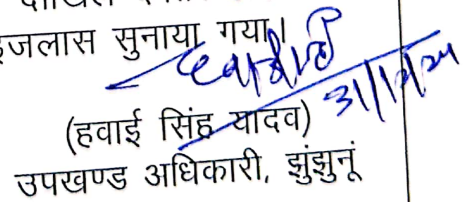 इजलास सुनाया गया।
31/12/24
(हवाई सिंह यादव)
उपखण्ड अधिकारी, झुंझुनूं